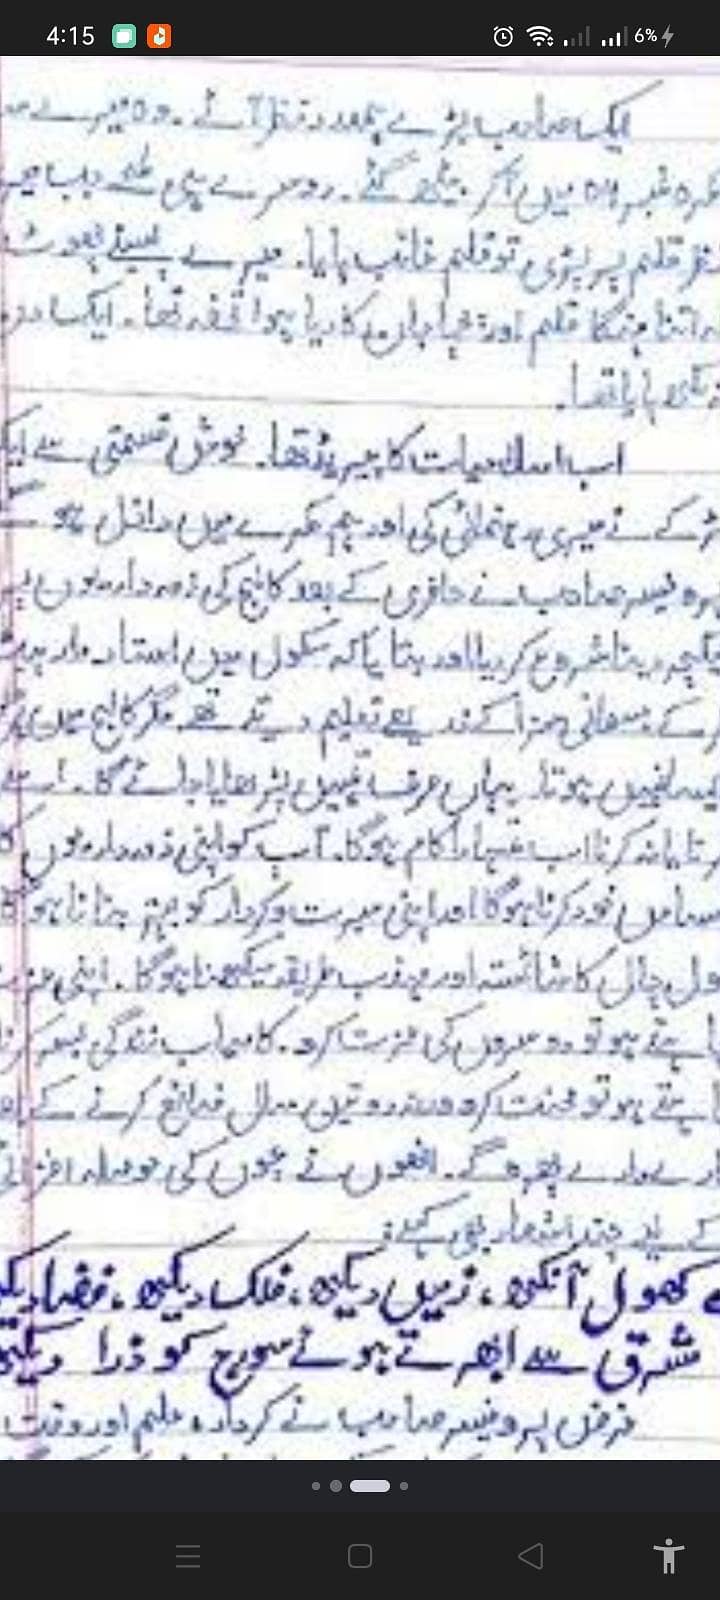 4:15
6%
ایک صاحب بڑے ہمدرد نظر آئے۔ وہ میرے
کمرہ نمبر میں آکر بیٹھ گئے۔ دوسرے ہی لمحے جب
نظر قلم پر پڑی تو قلم غائب پایا۔ میرے پسینے چھوٹ
اتنا مہنگا قلم اور چچا جان کا دیا ہوا تحفہ تھا۔ ایک اور
پایا تھا۔
اب اسلامیات کا پیریڈ تھا۔ خوش قسمتی سے ایک
لڑکے نے میری رہنمائی کی اور ہم کمرے میں داخل ہو
پروفیسر صاحب نے حاضری کے بعد کالج کی ذمہ داریوں پر
لیکچر دینا شروع کر دیا اور بتایا کہ سکول میں استاد مار پیٹ
کے جسمانی سزا کے ذریعے تعلیم دیتے تھے مگر کالج میں
ایسا نہیں ہوتا۔ یہاں صرف تمہیں پڑھایا جائے گا۔ اسے
کرنا یا نہ کرنا اب تمہارا کام ہوگا۔ آپ کو اپنی ذمہ داریوں کا
احساس خود کرنا ہوگا اور اپنی سیرت و کردار کو بہتر بنانا ہوگا
بول چال کا شائستہ اور مہذب طریقہ سیکھنا ہوگا۔ اپنی عزت
چاہتے ہو تو دوسروں کی عزت کرو۔ کامیاب زندگی بسر کرنا
چاہتے ہو تو محنت کرو ورنہ دو تین سال ضائع کرنے کے
مارے مارے پھرو گے۔ انھوں نے بچوں کی حوصلہ افزائی
کے لیے چند اشعار بھی کہے:
کھول آنکھ، زمیں دیکھ، فلک دیکھ، فضا دیکھ
مشرق سے ابھرتے ہوئے سورج کو ذرا دیکھ
غرض پروفیسر صاحب نے کردار، علم اور وقت